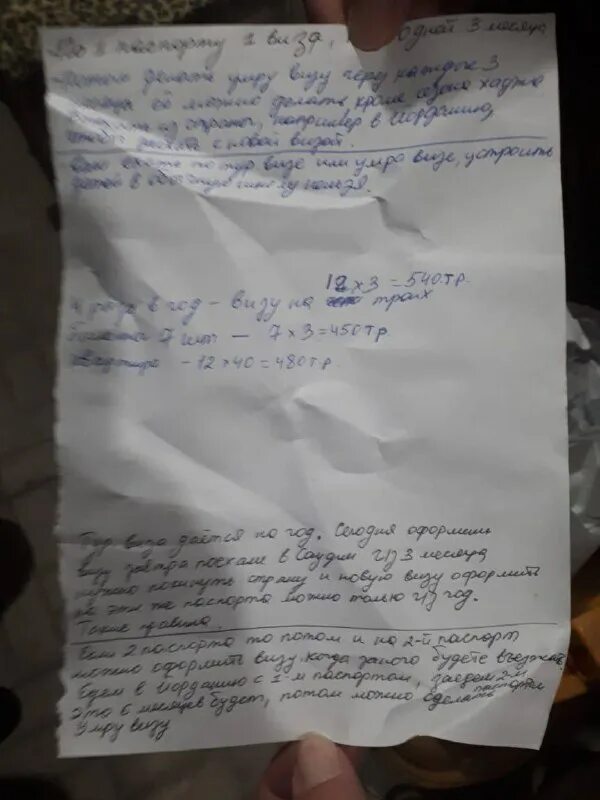 По 1 паспорту 1 виза, одной 3 месяца
Потом делать умру визу через каждые 3
месяца её можно делать кроме сезона хаджа
из страны, например в Иорданию,
с новой визой.
Если ехать по тур визе или умра визе, устроить
детей в обычную школу нельзя.
12 x 3 = 540 т.р.
4 раза в год - визу на троих
Билеты 7 шт - 7 x 3 = 450 тр
Квартира - 12 x 40 = 480 т.р.
Тур виза даётся на год. Сегодня оформишь
визу завтра поехали в Саудию ч/з 3 месяца
нужно покинуть страну и новую визу оформить
на эти же паспорта можно только ч/з год.
Такие правила.
Если 2 паспорта то потом и на 2-й паспорт
можно оформить визу когда заново будете въезжать
Едем в Иорданию с 1-м паспортом, заедем 2-м паспортом
Это 6 месяцев будет, потом можно сделать
Умру визу